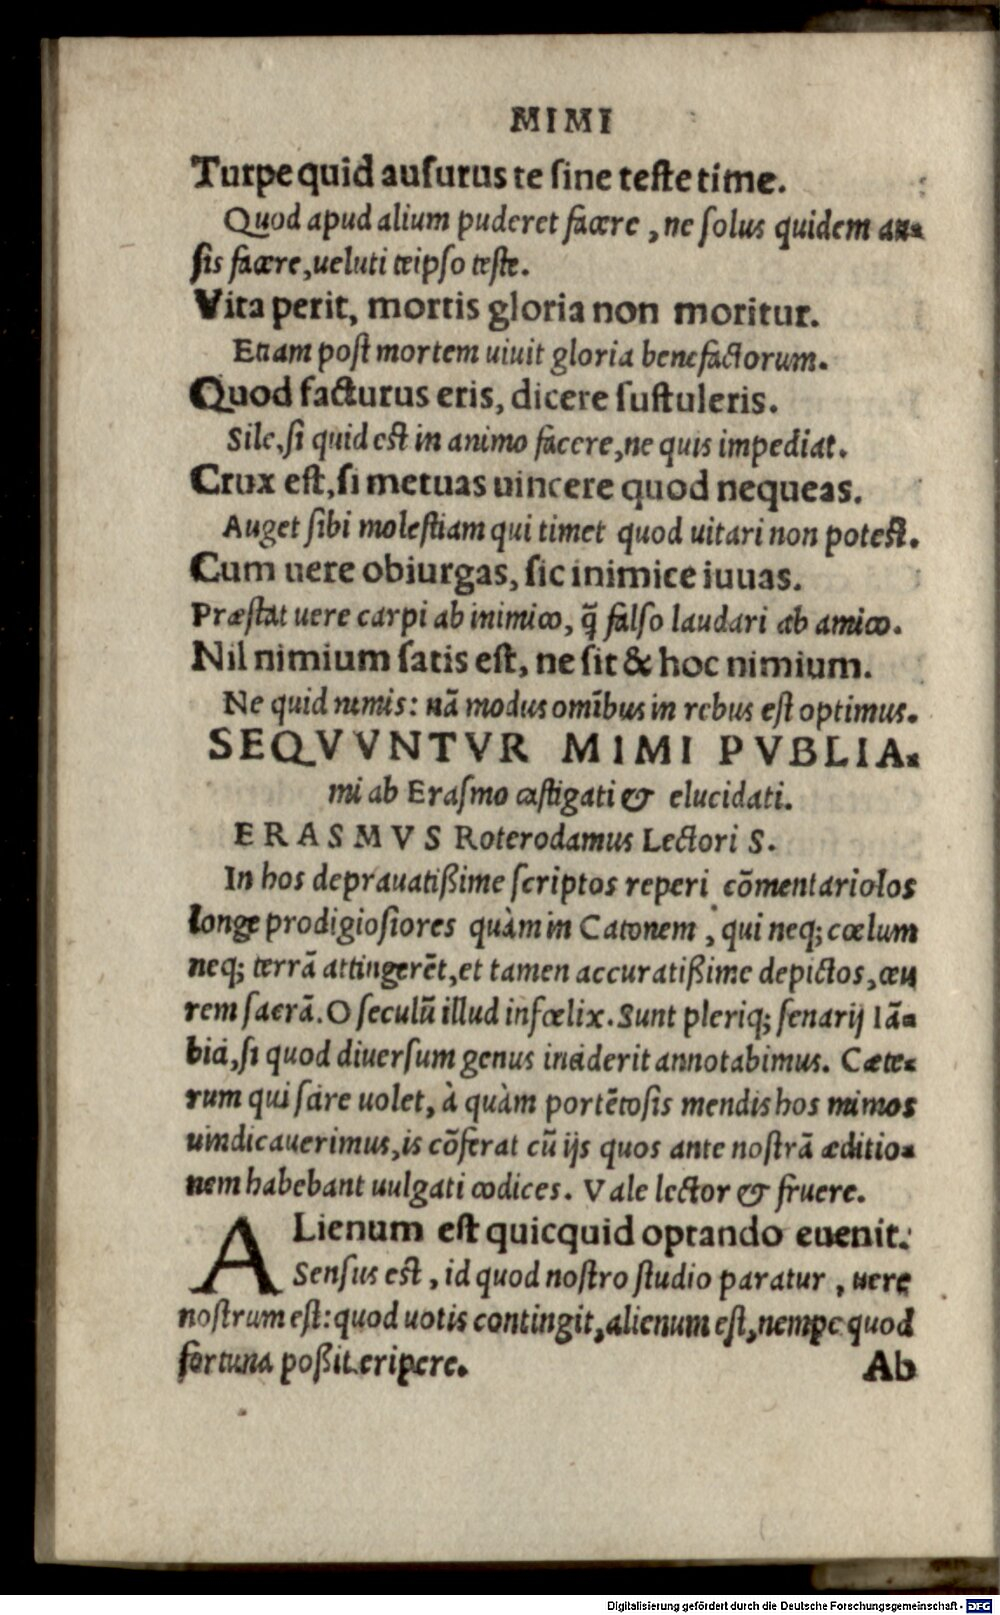 MIMI
Turpe quid ausurus te sine teste time.
Quod apud alium puderet facere, ne solus quidem au-
sis facere, ueluti teipso teste.
Vita perit, mortis gloria non moritur.
Etiam post mortem uiuit gloria benefactorum.
Quod facturus eris, dicere sustuleris.
Sile, si quid est in animo facere, ne quis impediat.
Crux est, si metuas uincere quod nequeas.
Auget sibi molestiam qui timet quod uitari non potest.
Cum uere obiurgas, sic inimice iuuas.
Præstat uere carpi ab inimico, q̃ falso laudari ab amico.
Nil nimium satis est, ne sit & hoc nimium.
Ne quid nimis: nã modus omĩbus in rebus est optimus.
SEQVVNTVR MIMI PVBLIA-
mi ab Erasmo castigati & elucidati.
ERASMVS Roterodamus Lectori S.
In hos deprauatißime scriptos reperi cõmentariolos
longe prodigiosiores quàm in Catonem, qui neq; cœlum
neq; terrã attingerẽt, et tamen accuratißime depictos, ceu
rem sacrã. O seculũ illud infœlix. Sunt pleriq; senarij Iã-
bici, si quod diuersum genus inciderit annotabimus. Cæte-
rum qui scire uolet, à quàm portẽtosis mendis hos mimos
uindicauerimus, is cõferat cũ ijs quos ante nostrã æditio-
nem habebant uulgati codices. Vale lector & fruere.
ALienum est quicquid optando euenit.
Sensus est, id quod nostro studio paratur, uere
nostrum est: quod uotis contingit, alienum est, nempe quod
fortuna poßit eripere.
Ab
Digitalisierung gefördert durch die Deutsche Forschungsgemeinschaft - DFG